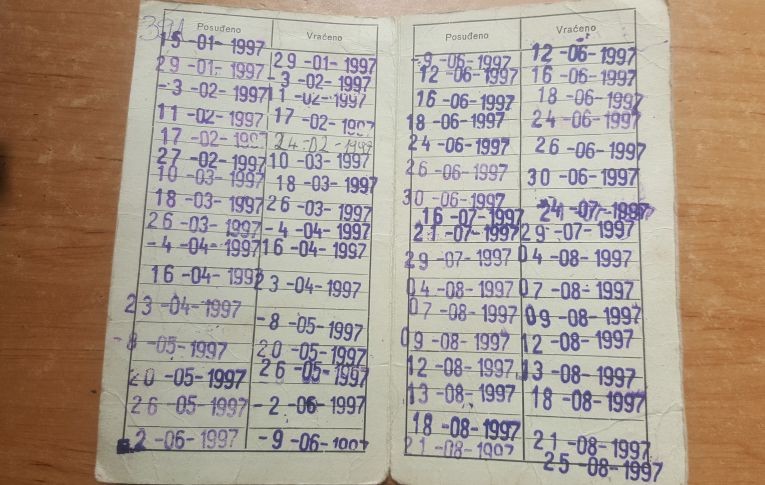 391
Posuđeno Vraćeno
15-01-1997 29-01-1997
29-01-1997 -3-02-1997
-3-02-1997 11-02-1997
11-02-1997 17-02-1997
17-02-1997 24-02-1997
27-02-1997 10-03-1997
10-03-1997 18-03-1997
18-03-1997 26-03-1997
26-03-1997 -4-04-1997
-4-04-1997 16-04-1997
16-04-1997 23-04-1997
23-04-1997 -8-05-1997
-8-05-1997 20-05-1997
20-05-1997 26-05-1997
26-05-1997 -2-06-1997
-2-06-1997 -9-06-1997
Posuđeno Vraćeno
-9-06-1997 12-06-1997
12-06-1997 16-06-1997
16-06-1997 18-06-1997
18-06-1997 24-06-1997
24-06-1997 26-06-1997
26-06-1997 30-06-1997
30-06-1997
16-07-1997 21-07-1997
21-07-1997 29-07-1997
29-07-1997 04-08-1997
04-08-1997 07-08-1997
07-08-1997 09-08-1997
09-08-1997 12-08-1997
12-08-1997 13-08-1997
13-08-1997 18-08-1997
18-08-1997 21-08-1997
21-08-1997 25-08-1997